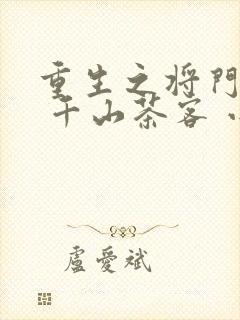 重生之将門
千山茶客
盧愛斌